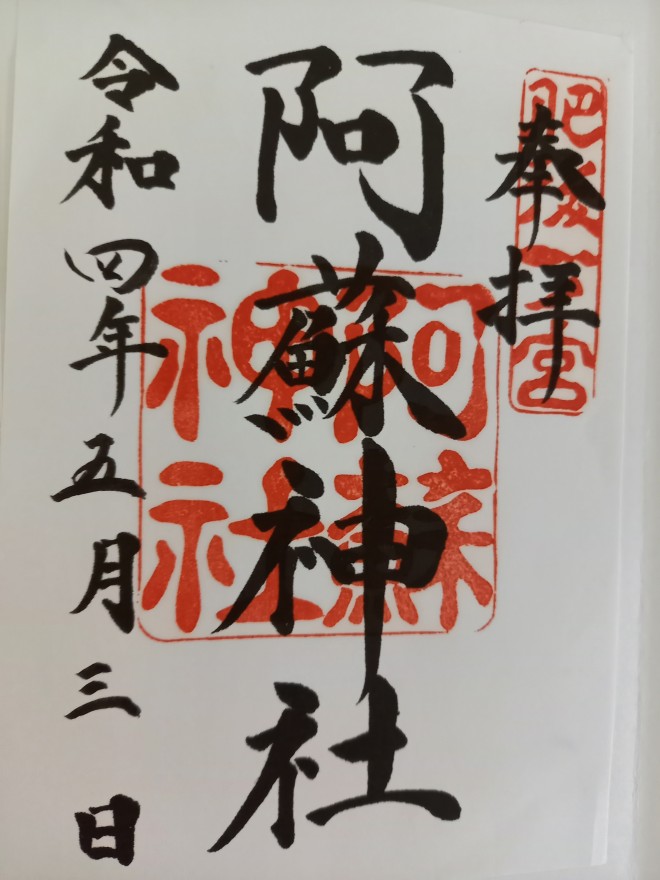 奉拝
肥後一宮
阿蘇神社
阿蘇神社
令和四年五月三日